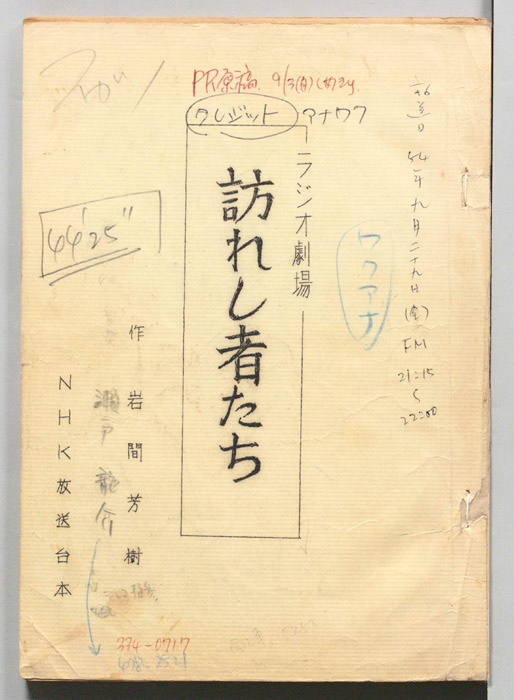 PR原稿 9/3(月)
クレジット アナウンス
放送日 54年九月二十九日(金) FM 21:15〜22:00
ワクアナ
ラジオ劇場
訪れし者たち
44'25"
作 岩間芳樹
瀬戸龍介
NHK放送台本
374-0717